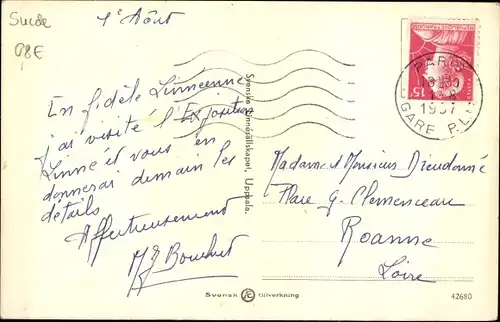 Suède
98E
1er Août
En fidèle Linnéenne
j'ai visité l'Exposition
Linné et vous en
donnerai demain les
détails
Affectueusement
Svenska Linnésällskapet, Uppsala.
REPUBLIQUE FRANÇAISE
15F
POSTES
PARIS
1957
GARE P.L.M.
Madame et Monsieur Dieudonné
Place G. Clemenceau
Roanne
Loire
Svensk Æ tillverkning
42680